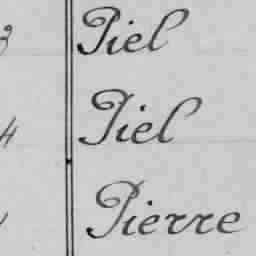 3 Piel
4 Piel
Pierre